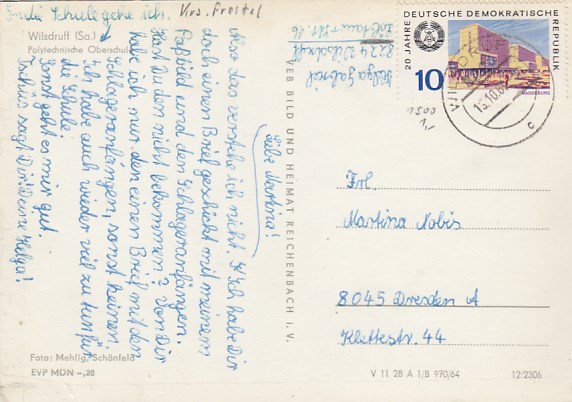 In die Schule gehe ich.
Krs. Freital
Wilsdruff (Sa.)
Polytechnische Oberschule
Liebe Martina!
Also das verstehe ich nicht. Ich habe Dir
doch einen Brief geschickt mit meinem
Paßbild und den Schlageranfängen.
Hast Du den nicht bekommen? Von Dir
habe ich nur den einen Brief mit den
Schlageranfängen, sonst keinen.
Ich habe auch wieder viel zu tun für
die Schule.
Sonst geht es mir gut.
Tschüs sagt Dir Deine Helga!
Foto: Mehlig, Schönfeld
EVP MDN -,20
VEB BILD UND HEIMAT REICHENBACH I. V.
Helga Gabriel
8224 Wilsdruff
16
20 JAHRE DEUTSCHE DEMOKRATISCHE REPUBLIK
10
MAGDEBURG
WILSDRUFF
15.10.
c
1500
1,-
Frl.
Martina Nobis
8045 Dresden A
Klettestr. 44
V 11 28 A 1/B 970/64
12:2306